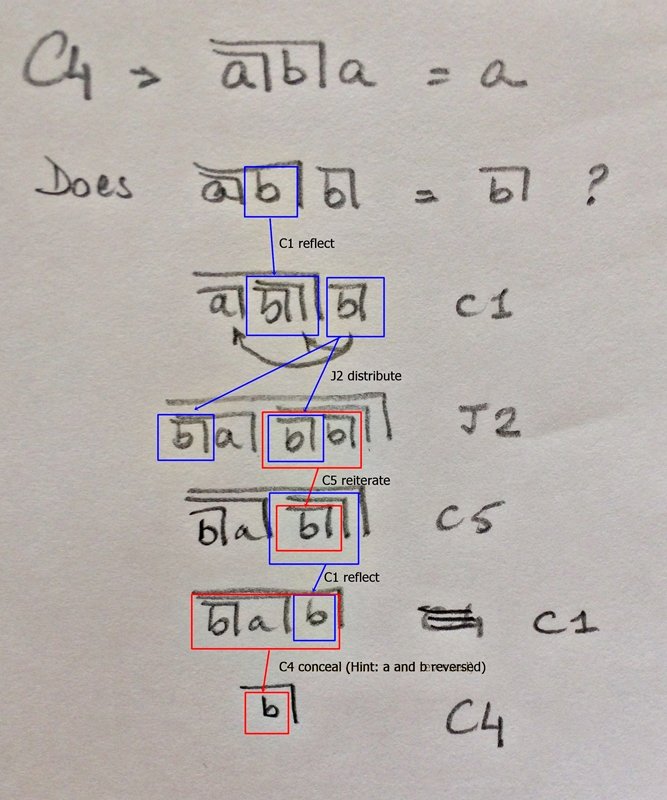 C4 → a b a = a
Does a b b = b ?
C1 reflect
a b b C1
J2 distribute
b a b b J2
C5 reiterate
b a b C5
C1 reflect
b a b C1
C4 conceal (Hint: a and b reversed)
b C4